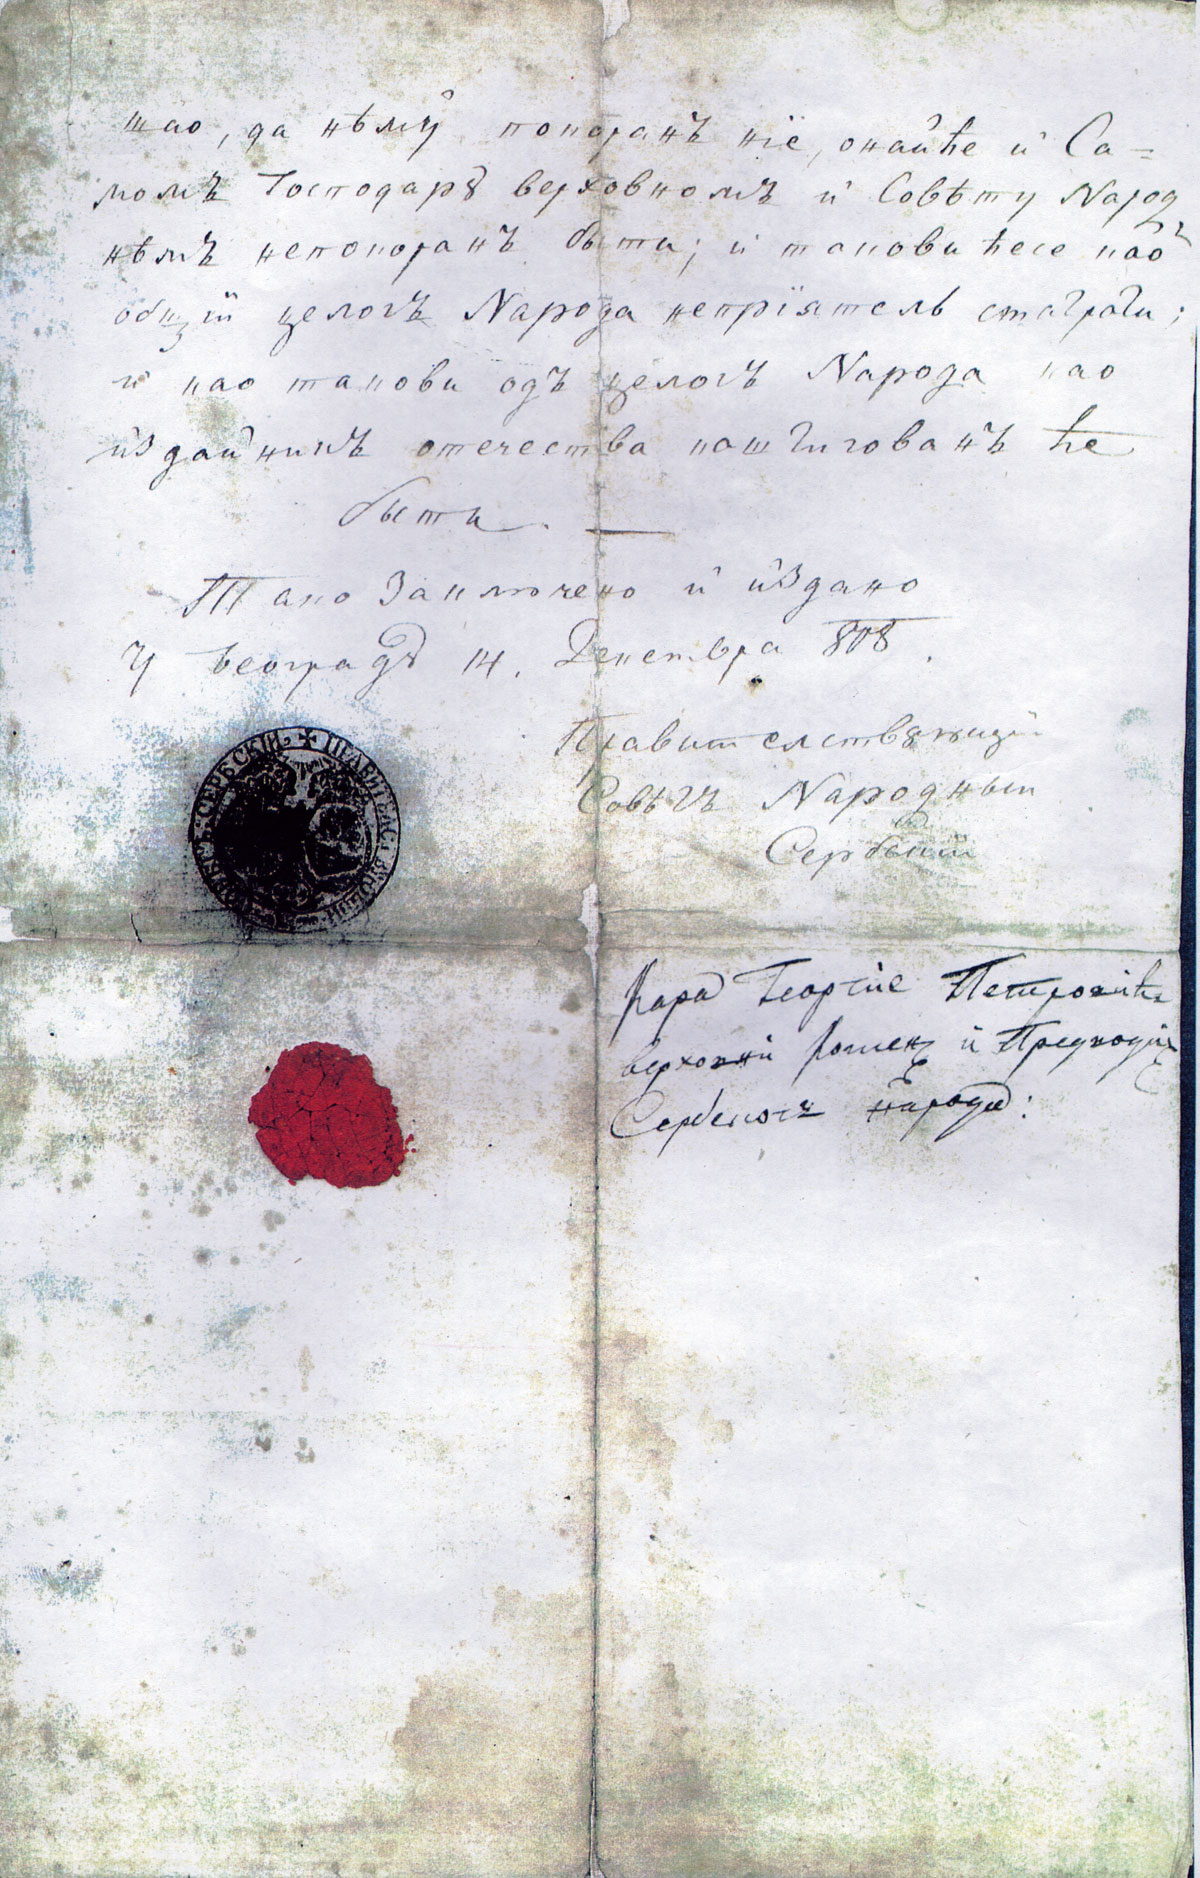 шао, да нѣму покоранъ нїе, онайће и Са-
момъ Господарȣ верховномъ и Совѣту Народ
нѣмъ непокоранъ быти; и таковиħесе као
общїй целогъ Народа непрїятель сматрати;
и као такови одъ целогъ Народа као
издайникъ отечества каштигованъ ће
быти. —
Тако Заключено и издано
У Београдȣ 14. Декемвра 808.
Правителствȣющїй
Совѣтъ Народный
Сербскїй
СЕРБСКІЙ ✠ ПРАВИТ
Кара Георгїе Петровићь
верховнй и Предводит
Сербскогъ народа: